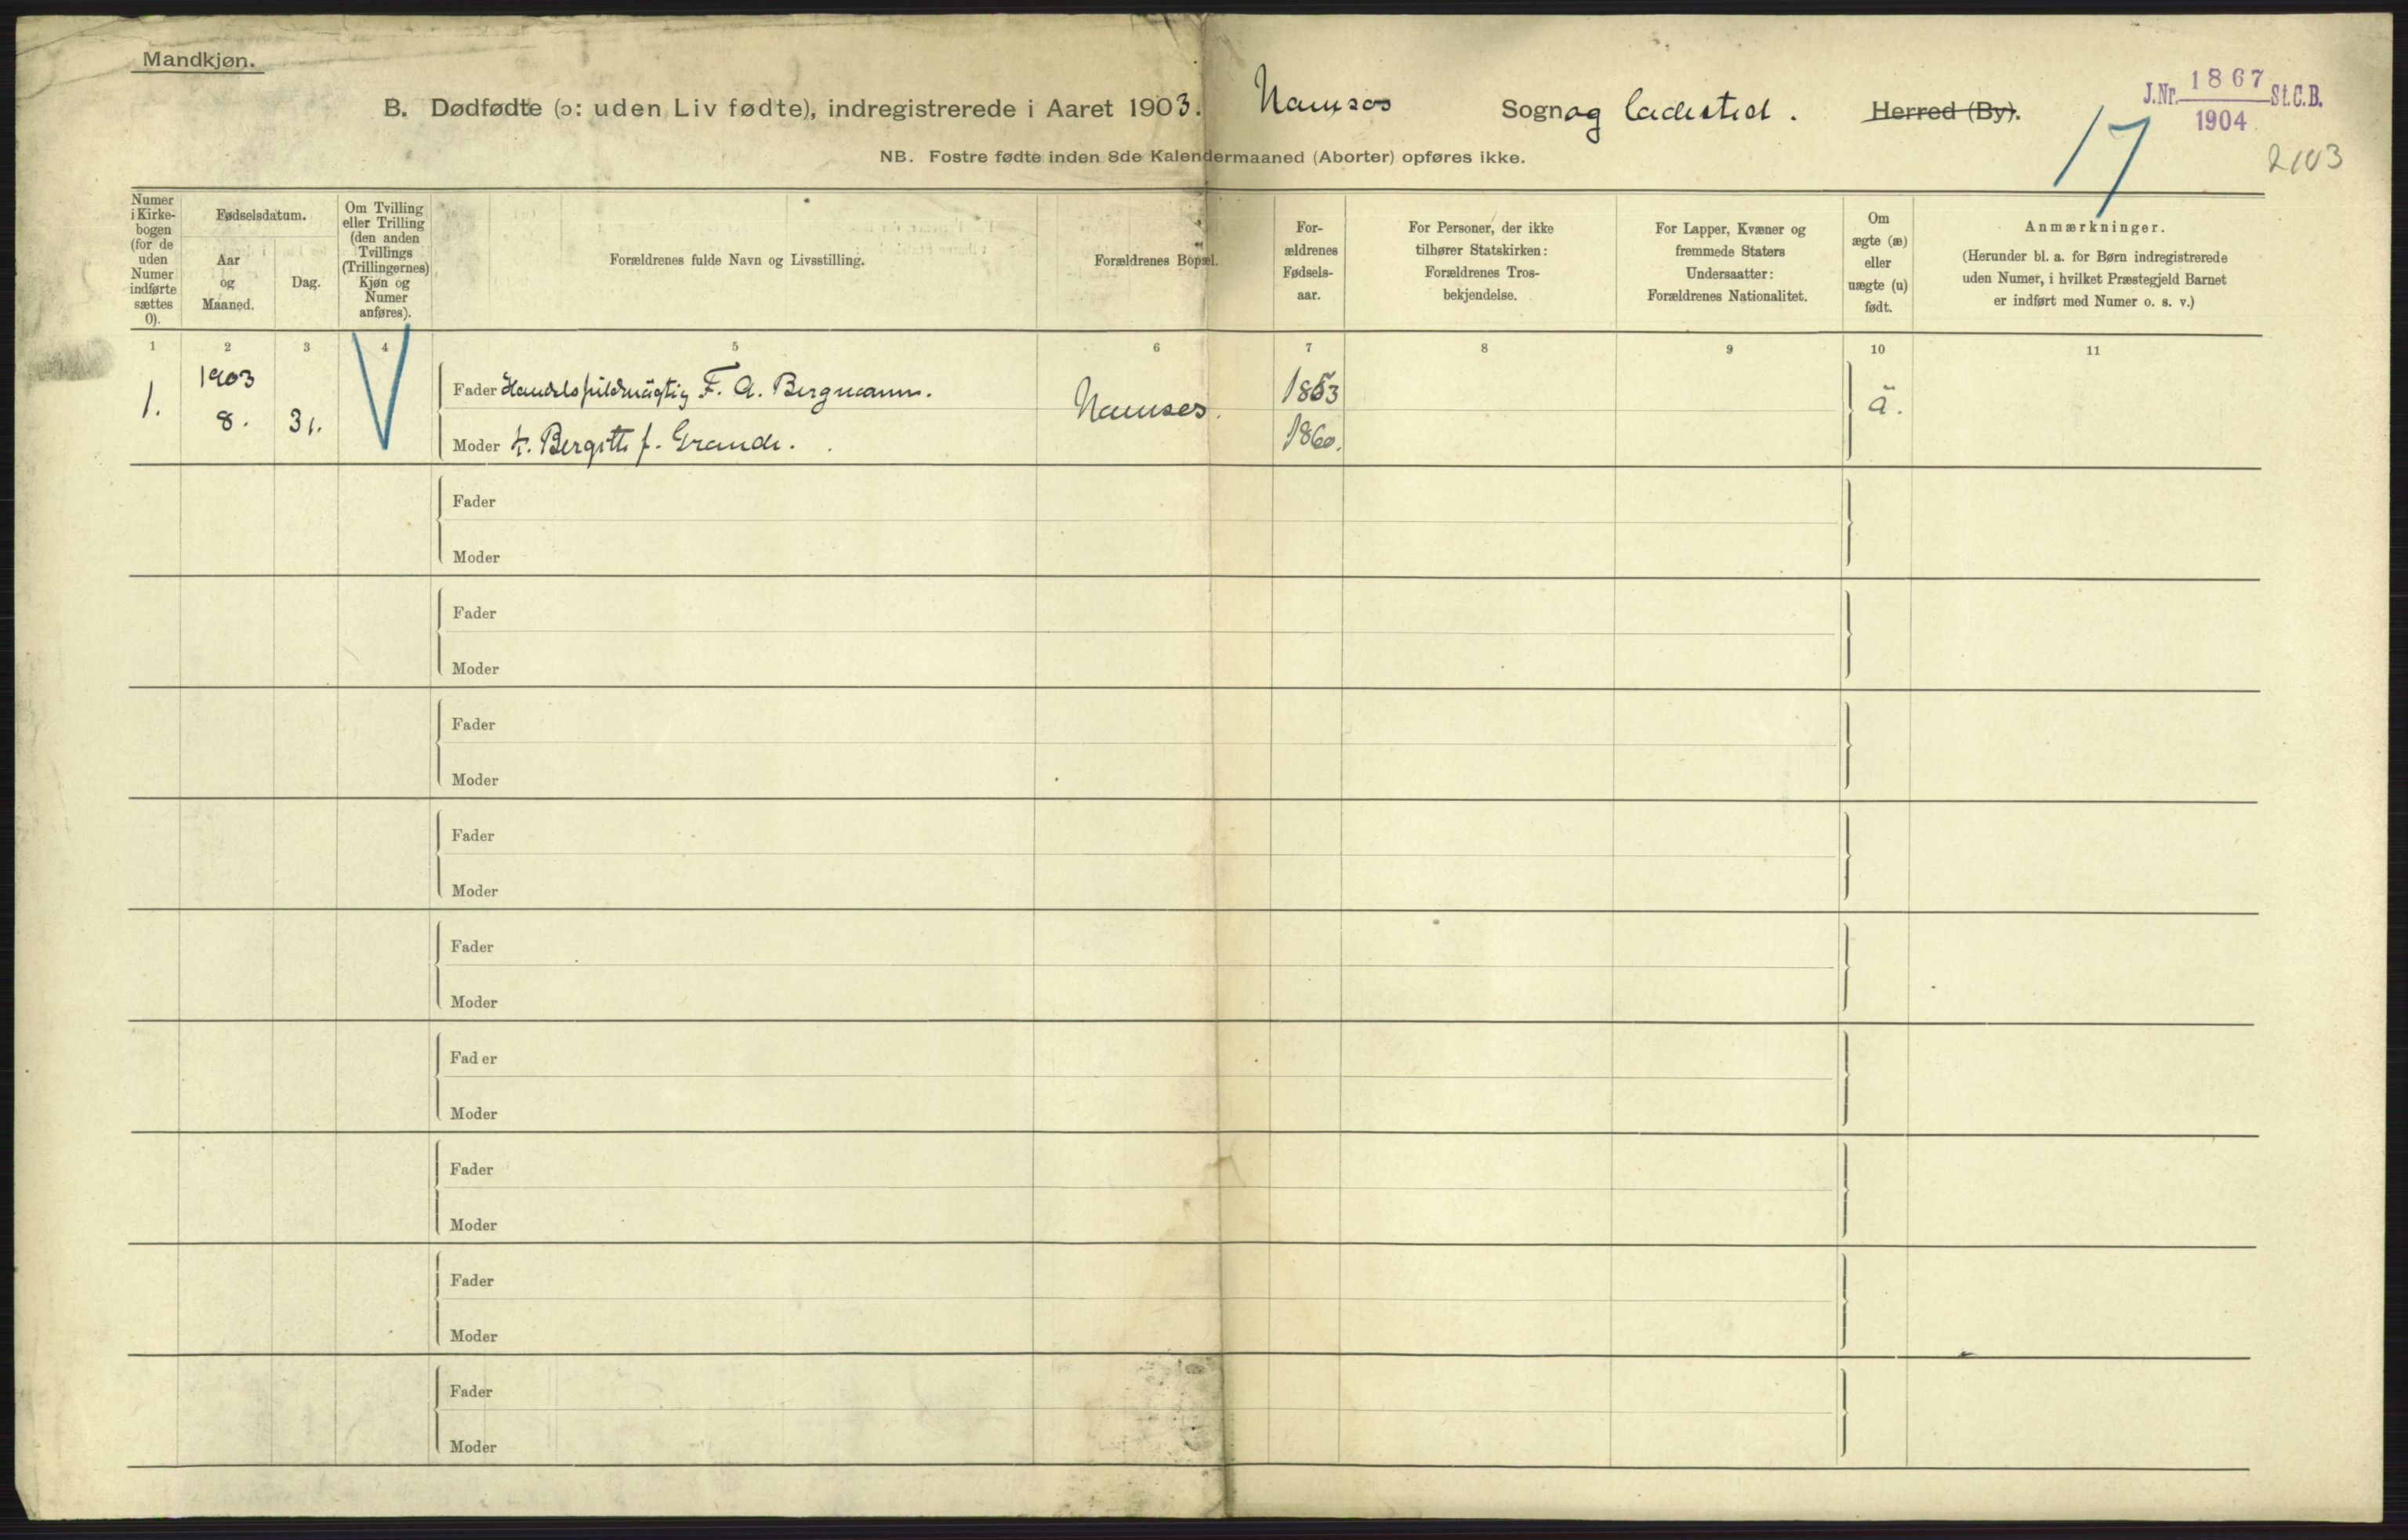 Mandkjøn.
B. Dødfødte (ɔ: uden Liv fødte), indregistrerede i Aaret 1903. Namsos Sogn og ladested. Herred (By).
J.Nr. 1867 St.C.B.
1904
17
2103
NB. Fostre fødte inden 8de Kalendermaaned (Aborter) opføres ikke.
Numer
i Kirke-
bogen
(for de
uden
Numer
indførte
sættes
0).
Fødselsdatum.
Aar
og
Maaned.
Dag.
Om Tvilling
eller Trilling
(den anden
Tvillings
(Trillingernes)
Kjøn og
Numer
anføres).
Forældrenes fulde Navn og Livsstilling.
Forældrenes Bopæl.
For-
ældrenes
Fødsels-
aar.
For Personer, der ikke
tilhører Statskirken:
Forældrenes Tros-
bekjendelse.
For Lapper, Kvæner og
fremmede Staters
Undersaatter:
Forældrenes Nationalitet.
Om
ægte (æ)
eller
uægte (u)
født.
Anmærkninger.
(Herunder bl. a. for Børn indregistrerede
uden Numer, i hvilket Præstegjeld Barnet
er indført med Numer o. s. v.)
1 2 3 4 5 6 7 8 9 10 11
1.
1903
8. 31.
Fader Handelsfuldmægtig F. A. Bergmann.
Moder h. Bergitte f. Grande.
Namsos.
1853
1860.
ä.
Fader
Moder
Fader
Moder
Fader
Moder
Fader
Moder
Fader
Moder
Fader
Moder
Fader
Moder
Fader
Moder
Fader
Moder